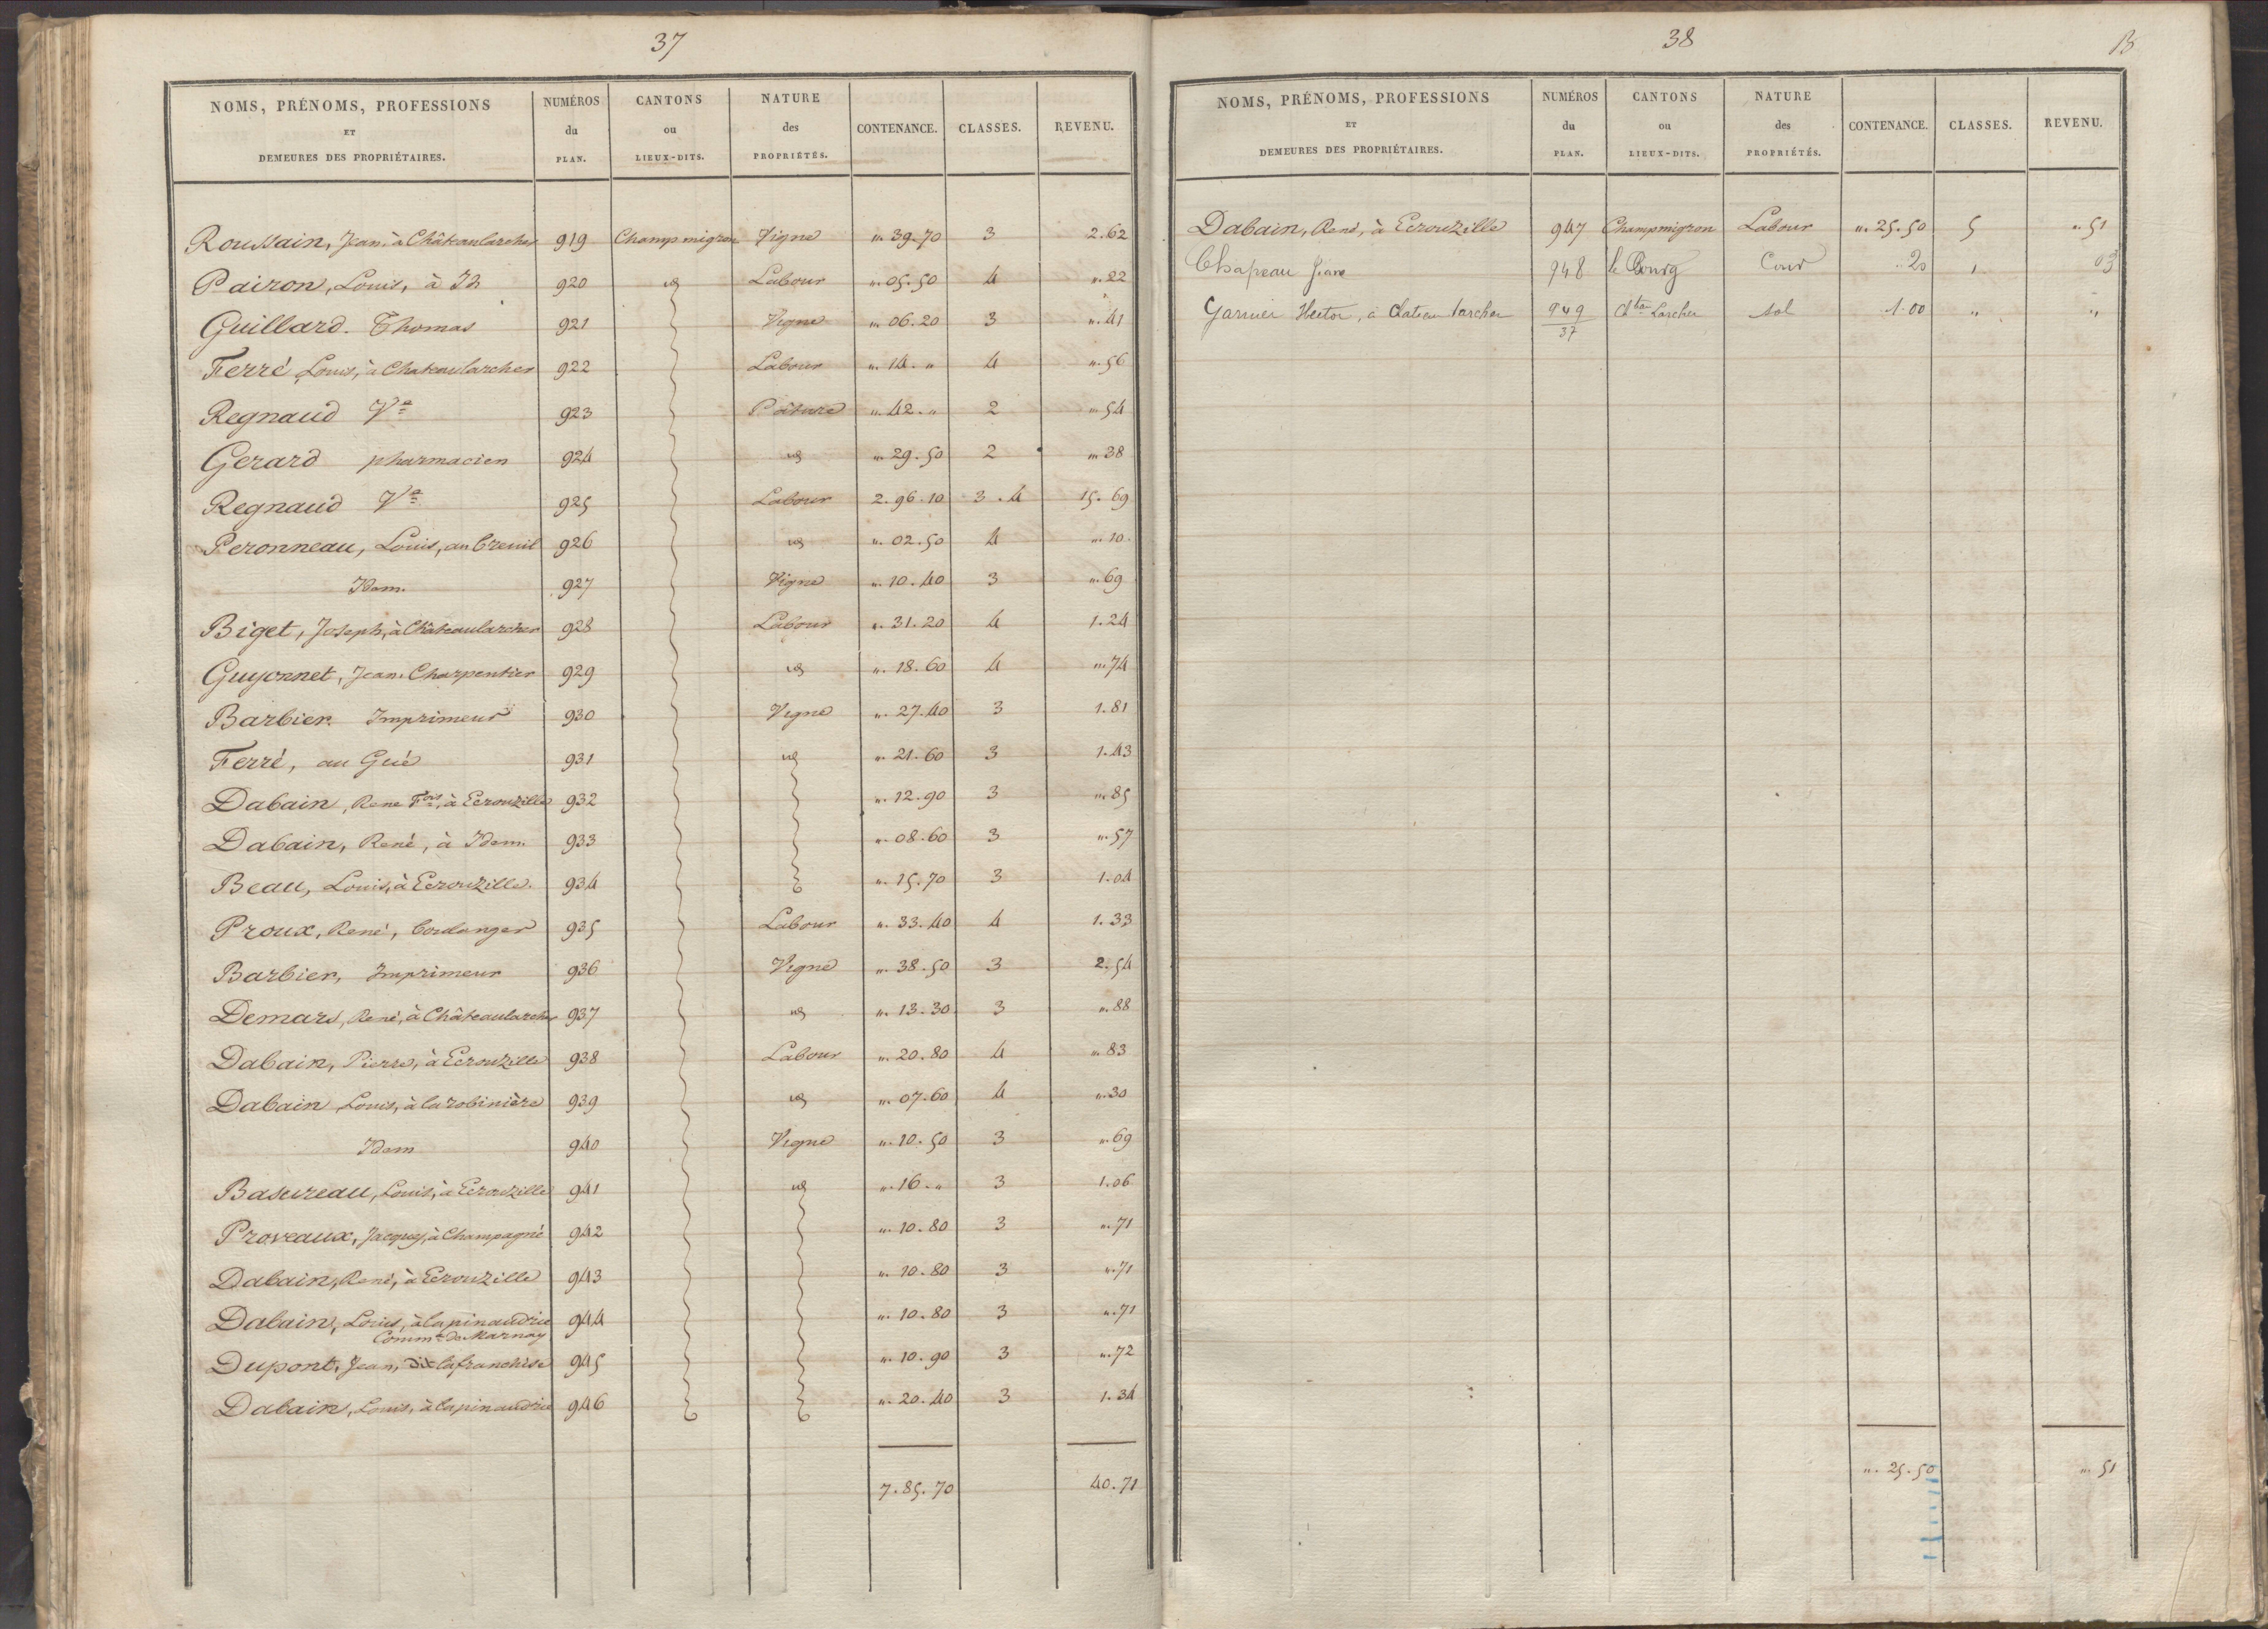 37
NOMS, PRÉNOMS, PROFESSIONS ET DEMEURES DES PROPRIÉTAIRES. NUMÉROS du PLAN. CANTONS ou LIEUX-DITS. NATURE des PROPRIÉTÉS. CONTENANCE. CLASSES. REVENU.
Roussain, Jean, à Châteaularcher 919 Champmigron Vigne „. 39.70 3 2.62
Pairon, Louis, à Id 920 id Labour „. 05.50 4 „. 22
Guillard. Thomas 921 Vigne „. 06.20 3 „. 41
Ferré Louis, à Chateaularcher 922 Labour „. 14. „ 4 „. 56
Regnaud Ve 923 Pâture „. 42. „ 2 „. 54
Gerard pharmacien 924 id „. 29.50 2 „. 38
Regnaud Ve 925 Labour 2.96.10 3.4 15.69
Peronneau, Louis, au breuil 926 id „. 02.50 4 „. 10
Idem. 927 Vigne „. 10.40 3 „. 69
Biget, Joseph, à Châteaularcher 928 Labour „. 31.20 4 1.24
Guyonnet, Jean. Charpentier 929 id „. 18.60 4 „. 74
Barbier. Imprimeur 930 Vigne „. 27.40 3 1.81
Ferré, au Gué 931 id „. 21.60 3 1.43
Dabain, Rene Fois, à Ecrouzille 932 „. 12.90 3 „. 85
Dabain, René, à Idem. 933 „. 08.60 3 „. 57
Beau, Louis, à Ecrouzille. 934 „. 15.70 3 1.04
Proux, René, boulanger 935 Labour „. 33.40 4 1.33
Barbier, Imprimeur 936 Vigne „. 38.50 3 2.54
Demars, René, à Châteaularcher 937 id „. 13.30 3 „. 88
Dabain, Pierre, à Ecrouzille 938 Labour „. 20.80 4 „. 83
Dabain Louis, à la robinière 939 id „. 07.60 4 „. 30
Idem 940 Vigne „. 10.50 3 „. 69
Basureau, Louis, à Ecrouzille 941 id „. 16. „ 3 1.06
Proveaux, Jacques, à Champagné 942 „. 10.80 3 „. 71
Dabain, René, à Ecrouzille 943 „. 10.80 3 „. 71
Dabain, Louis, à la pinaudrie 944 „. 10.80 3 „. 71
Comm.e de Marnay
Dupont, Jean, dit lafranchise 945 „. 10.90 3 „. 72
Dabain, Louis, à la pinaudrie 946 „. 20.40 3 1.34
7.85.70 40.71
38
B
NOMS, PRÉNOMS, PROFESSIONS ET DEMEURES DES PROPRIÉTAIRES. NUMÉROS du PLAN. CANTONS ou LIEUX-DITS. NATURE des PROPRIÉTÉS. CONTENANCE. CLASSES. REVENU.
Dabain, René, à Ecrouzille 947 Champmigron Labour „. 25.50 5 „. 51
Chapeau 948 le Bourg Cour 20 1 03
Garnier Hector, à Chateau larcher 949/37 Chteau Larcher sol 1.00 „ „
„. 25.50 „. 51